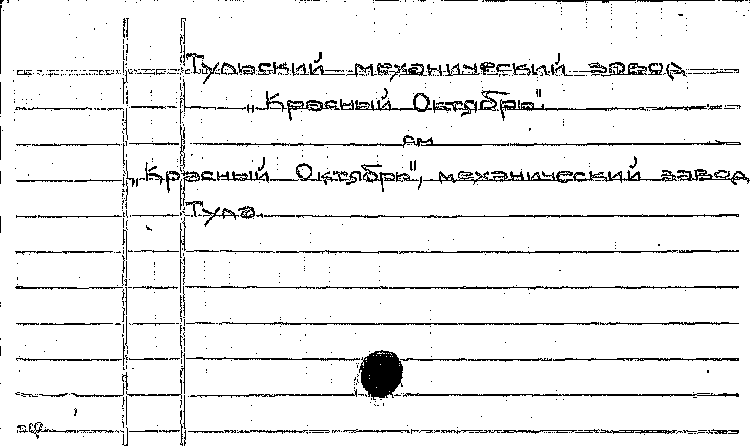 Тульский механический завод
„Красный Октябрь"
см
„Красный Октябрь", механический завод
Тула.